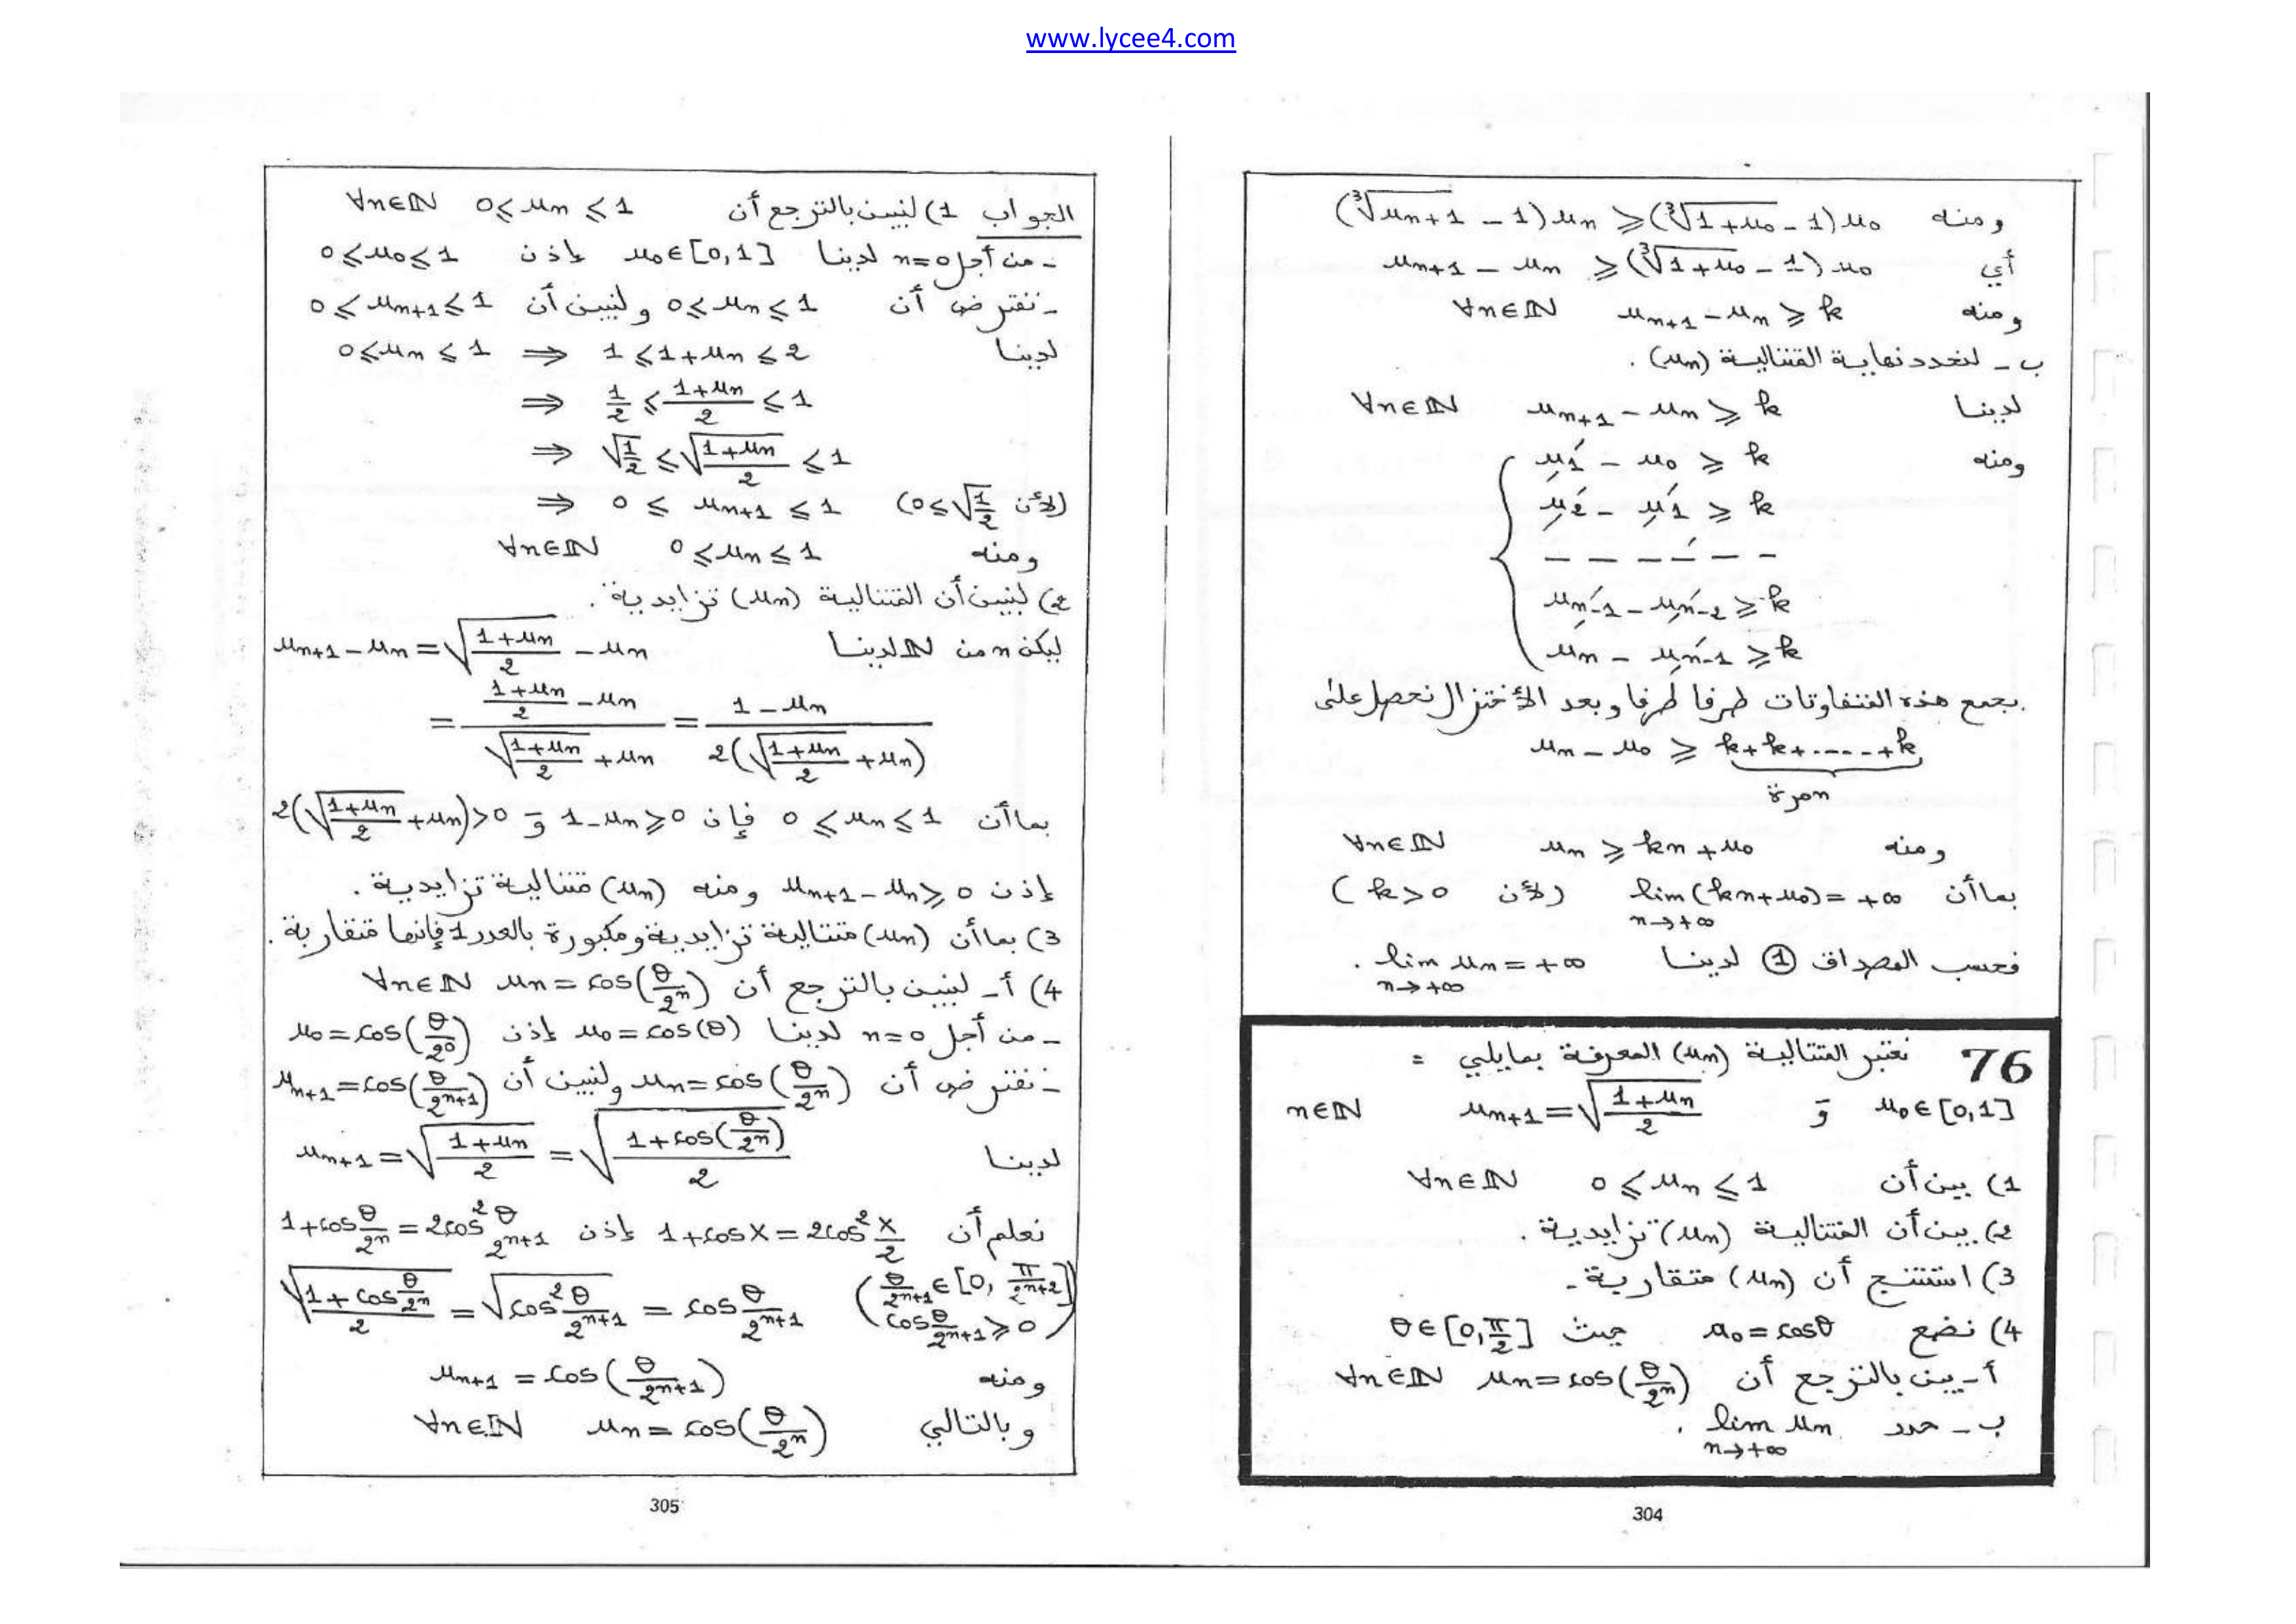 www.lycee4.com
ومنه (∛(u_n+1) − 1)u_n ⩾ (∛(1+u_0) − 1)u_0
أي u_{n+1} − u_n ⩾ (∛(1+u_0) − 1)u_0
ومنه u_{n+1} − u_n ⩾ k ∀n∈ℕ
ب - لنحدد نهاية المتتالية (u_n).
لدينا u_{n+1} − u_n ⩾ k ∀n∈ℕ
ومنه { u_1 − u_0 ⩾ k
u_2 − u_1 ⩾ k
− − − − − −
u_{n-1} − u_{n-2} ⩾ k
u_n − u_{n-1} ⩾ k
بجمع هذه المتفاوتات طرفا طرفا وبعد الأختزال نحصل على
u_n − u_0 ⩾ k+k+.....+k
n مرة
ومنه u_n ⩾ kn + u_0 ∀n∈ℕ
بما أن lim_{n→+∞} (kn+u_0) = +∞ (لأن k>0)
فحسب المصداق ① لدينا lim_{n→+∞} u_n = +∞ .
76 نعتبر المتتالية (u_n) المعرفة بمايلي =
u_0 ∈ [0,1] و u_{n+1} = √((1+u_n)/2) n∈ℕ
1) بين أن 0 ⩽ u_n ⩽ 1 ∀n∈ℕ
2) بين أن المتتالية (u_n) تزايدية .
3) استنتج أن (u_n) متقاربة .
4) نضع u_0 = cosθ حيث θ∈[0,π/2]
أ - بين بالترجع أن u_n = cos(θ/2^n) ∀n∈ℕ
ب - حدد lim_{n→+∞} u_n .
304
الجواب 1) لنبين بالترجع أن 0 ⩽ u_n ⩽ 1 ∀n∈ℕ
- من أجل n=0 لدينا u_0∈[0,1] إذن 0⩽u_0⩽1
- نفترض أن 0⩽u_n⩽1 ولنبين أن 0⩽u_{n+1}⩽1
لدينا 0⩽u_n⩽1 ⟹ 1⩽1+u_n⩽2
⟹ 1/2 ⩽ (1+u_n)/2 ⩽ 1
⟹ √(1/2) ⩽ √((1+u_n)/2) ⩽ 1
⟹ 0 ⩽ u_{n+1} ⩽ 1 (لأن 0⩽√(1/2))
ومنه 0⩽u_n⩽1 ∀n∈ℕ
2) لنبين أن المتتالية (u_n) تزايدية .
ليكن n من ℕ لدينا u_{n+1} − u_n = √((1+u_n)/2) − u_n
= ((1+u_n)/2 − u_n)/(√((1+u_n)/2) + u_n) = (1−u_n)/(2(√((1+u_n)/2) + u_n))
بما أن 0⩽u_n⩽1 فإن 1−u_n⩾0 و 2(√((1+u_n)/2) + u_n)>0
إذن u_{n+1} − u_n ⩾ 0 ومنه (u_n) متتالية تزايدية .
3) بما أن (u_n) متتالية تزايدية ومكبورة بالعدد 1 فإنها متقاربة .
4) أ - لنبين بالترجع أن u_n = cos(θ/2^n) ∀n∈ℕ
- من أجل n=0 لدينا u_0 = cos(θ) إذن u_0 = cos(θ/2^0)
- نفترض أن u_n = cos(θ/2^n) ولنبين أن u_{n+1} = cos(θ/2^{n+1})
لدينا u_{n+1} = √((1+u_n)/2) = √((1+cos(θ/2^n))/2)
نعلم أن 1+cos x = 2cos² x/2 إذن 1+cos θ/2^n = 2cos² θ/2^{n+1}
√((1+cos θ/2^n)/2) = √(cos² θ/2^{n+1}) = cos θ/2^{n+1} (θ/2^{n+1} ∈ [0, π/2^{n+2}] cos θ/2^{n+1} ⩾ 0)
ومنه u_{n+1} = cos(θ/2^{n+1})
وبالتالي u_n = cos(θ/2^n) ∀n∈ℕ
305